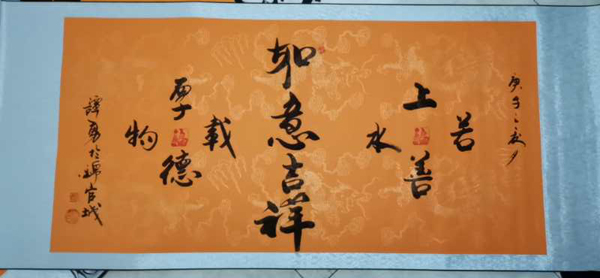 庚子之秋夕
上善若水
如意吉祥
厚德載物
譚勇於錦官城